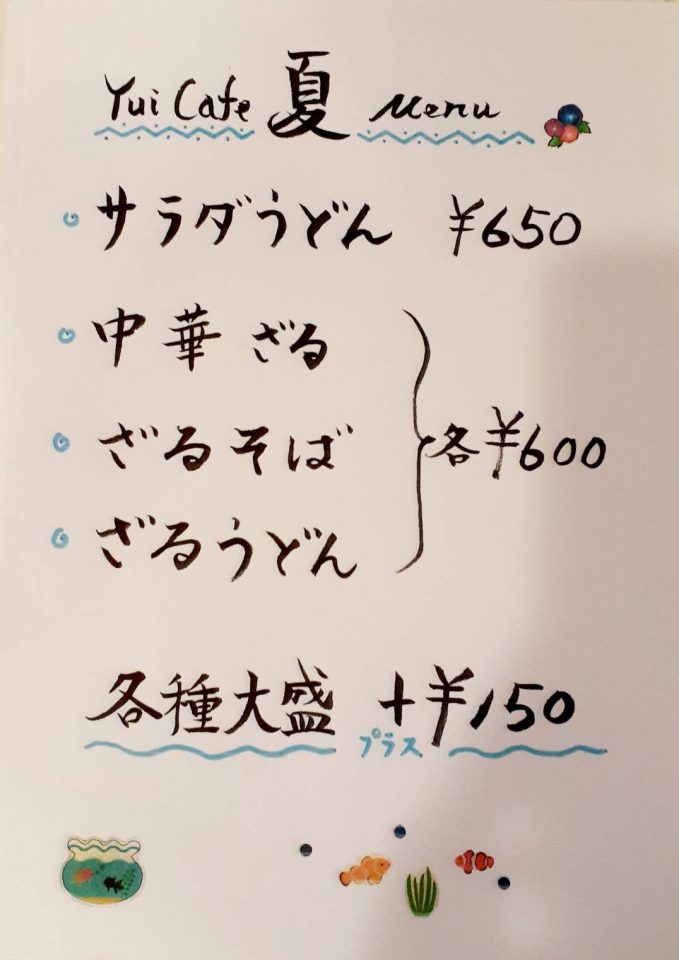 Yui Cafe 夏 Menu
サラダうどん ¥650
中華ざる
ざるそば 各¥600
ざるうどん
各種大盛 +¥150
プラス